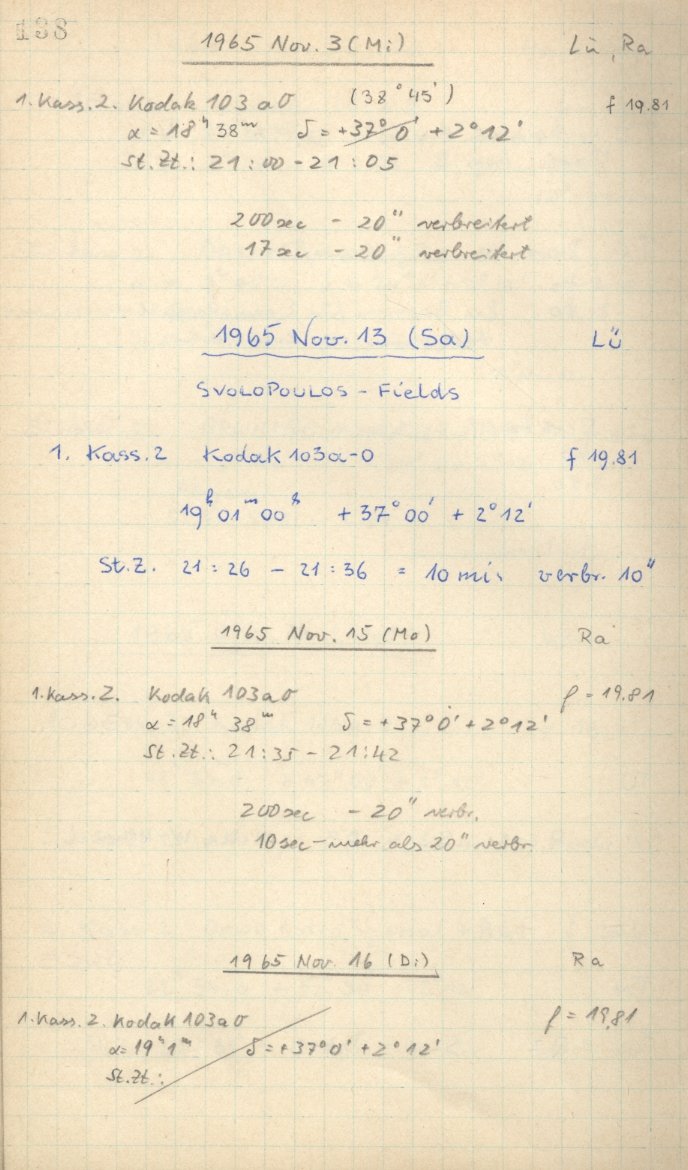 138
1965 Nov. 3 (Mi) Lü, Ra
1. Kass. 2. Kodak 103 a O (38° 45') f 19.81
α = 18ʰ 38ᵐ δ = +37° 0' + 2° 12'
St. Zt.: 21:00 - 21:05
200 sec - 20" verbreitert
17 sec - 20" verbreitert
1965 Nov. 13 (Sa) LÜ
SVOLOPOULOS - Fields
1. Kass. 2 Kodak 103a-O f 19.81
19ʰ 01ᵐ 00ˢ + 37° 00' + 2° 12'
St. Z. 21:26 - 21:36 = 10 min verbr. 10"
1965 Nov. 15 (Mo) Ra
1. Kass. 2. Kodak 103 a O f = 19.81
α = 18ʰ 38ᵐ δ = +37° 0' + 2° 12'
St. Zt.: 21:35 - 21:42
200 sec - 20" verbr.
10 sec - mehr als 20" verbr
1965 Nov. 16 (Di) Ra
1. Kass. 2. Kodak 103 a O f = 19,81
α = 19ʰ 1ᵐ δ = +37° 0' + 2° 12'
St. Zt.: